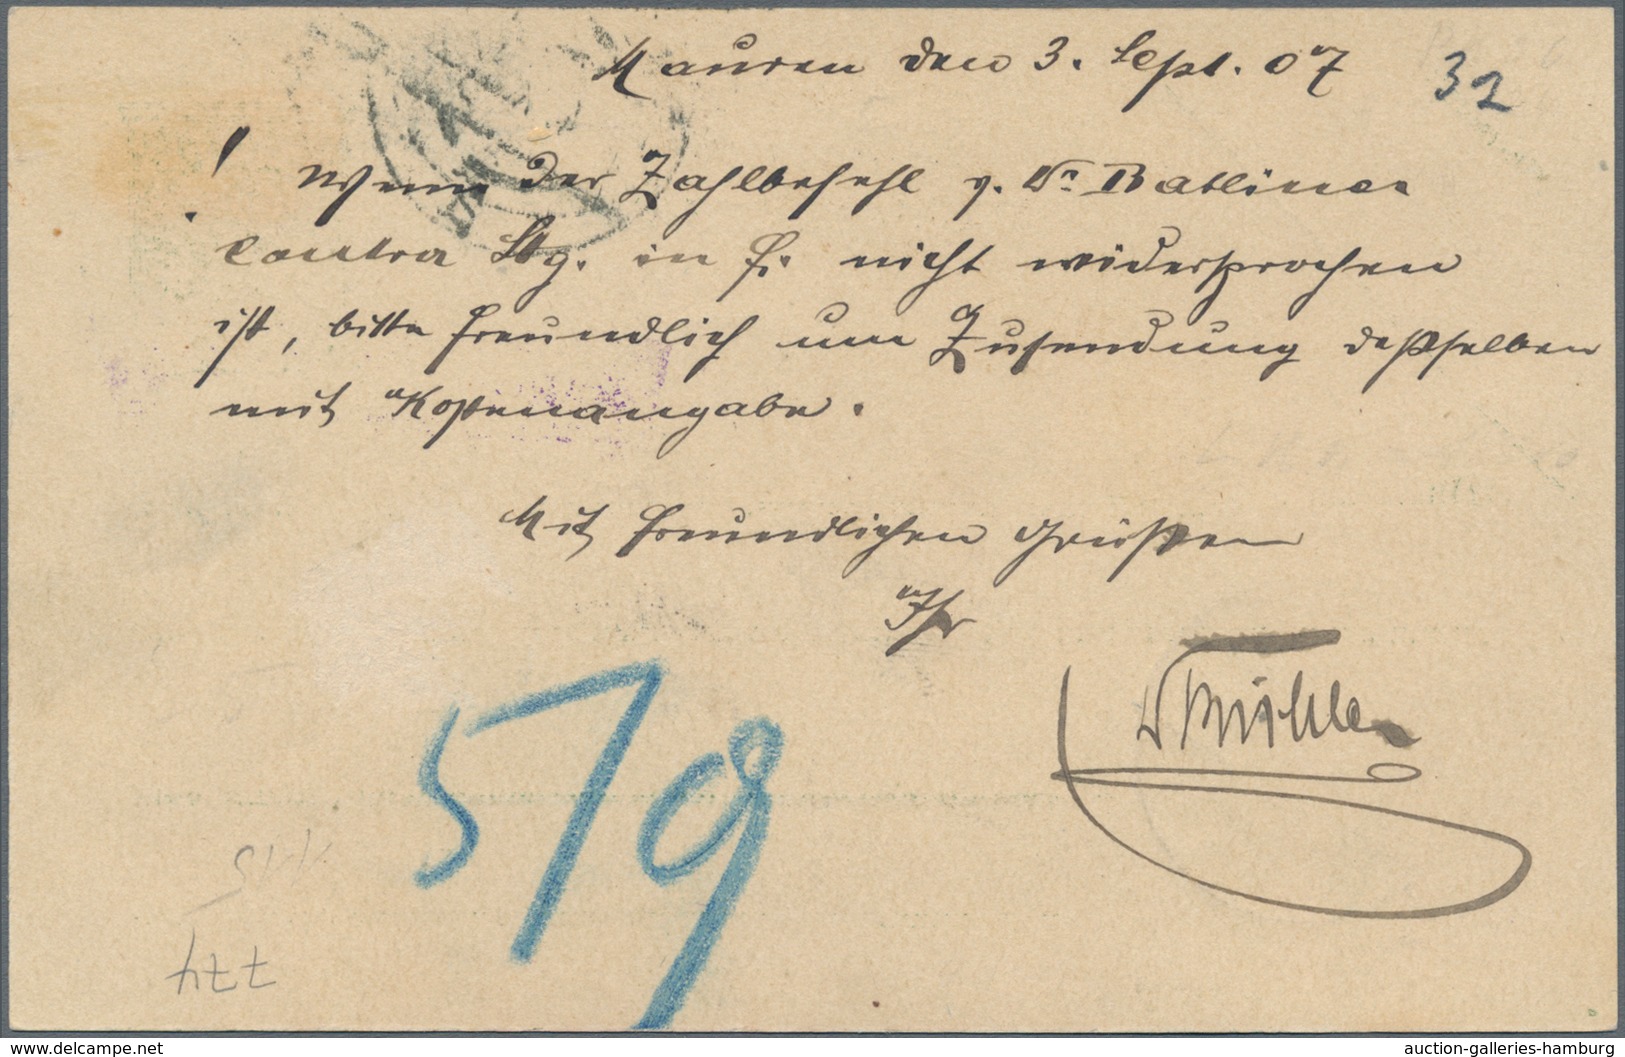 Mauren den 3. Sept. 07
32
! Wenn der Zahlbefehl v. Dr. Batliner
contra Stg. in f. nicht widersprochen
ist, bitte freundlich um Zusendung desselben
mit Kostenangabe.
Mit freundlichen Grüßen
Ihr
5/9
delcampe.net
auction-galleries-hamburg